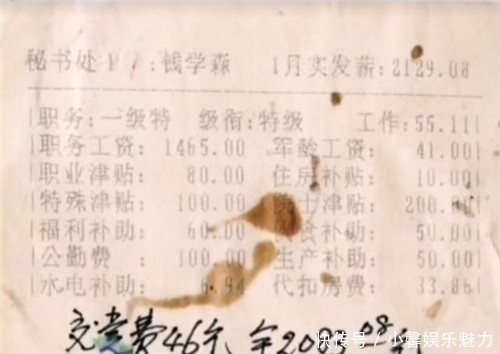 秘书处 钱学森 1月实发薪:2129.08
职务:一级特 级衔:特级 工作:55.11
职务工资: 1465.00 军龄工资: 41.00
职业津贴: 80.00 住房补贴: 10.00
特殊津贴: 100.00 士津贴: 200.00
福利补助: 60.00 食补助: 50.00
公勤费 : 100.00 生产补助: 50.00
水电补助: 6.94 代扣房费: 33.86
交党费46元
快传号/小馨娱乐魅力